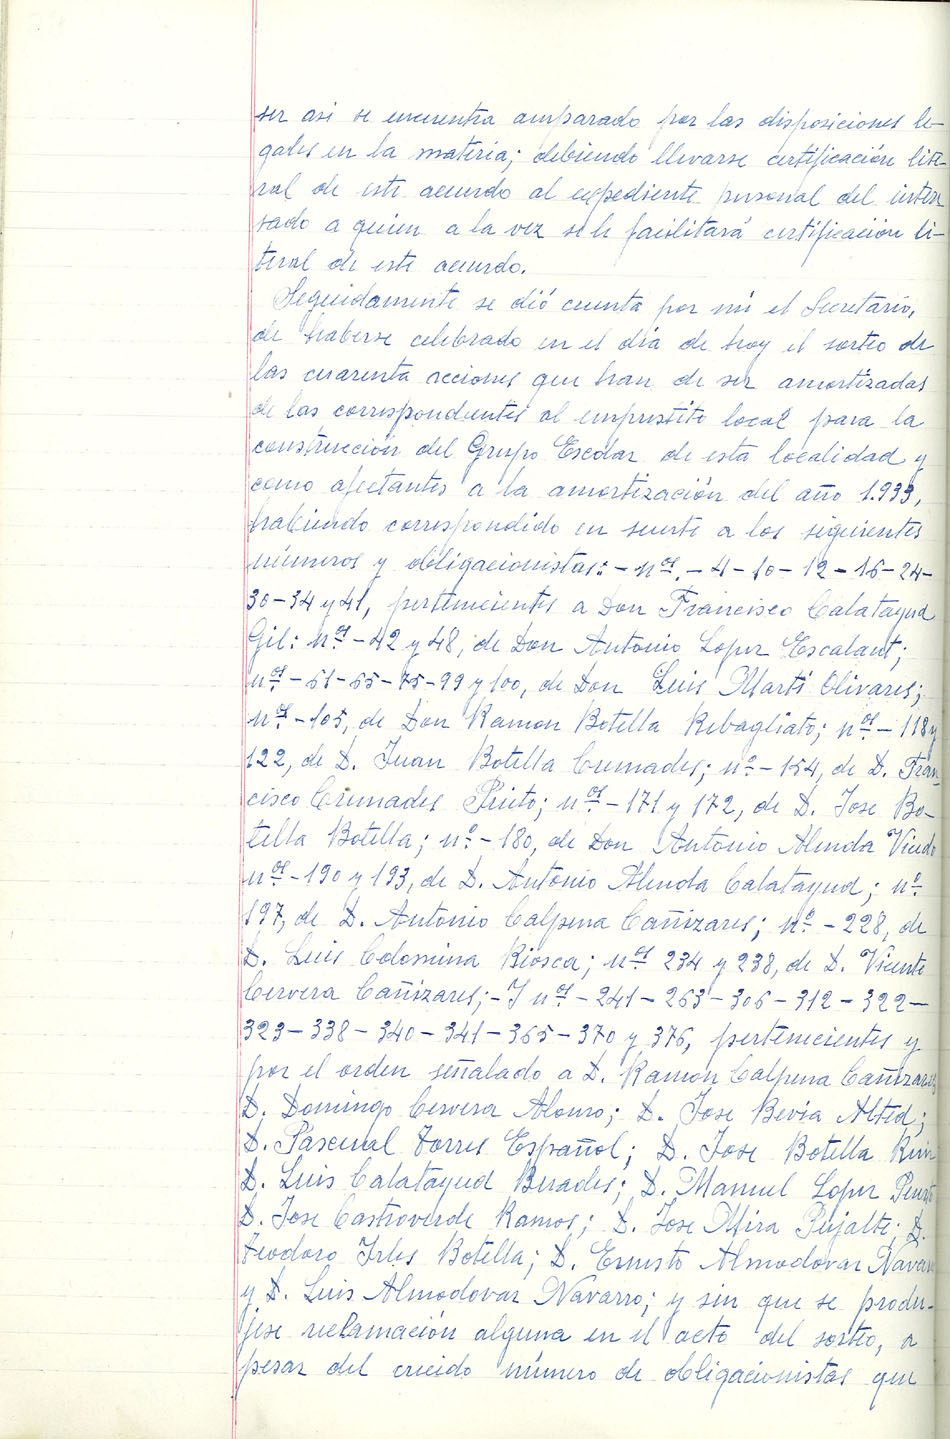 ser asi se encuentra amparado por las disposiciones le-
gales en la materia; debiendo llevarse certificación lite-
ral de este acuerdo al expediente personal del intere
sado a quien a la vez se le facilitará certificación li-
teral de este acuerdo.
Seguidamente se dió cuenta por mi el Secretario,
de haberse celebrado en el día de hoy el sorteo de
las cuarenta acciones que han de ser amortizadas
de las correspondientes al empréstito local para la
construcción del Grupo Escolar de esta localidad y
como afectantes a la amortización del año 1.939,
habiendo correspondido en suerte a los siguientes
números y obligacionistas:- nos.- 4-10-12-16-24-
30-34 y 41, pertenecientes a Don Francisco Calatayud
Gil: nos-42 y 48, de Don Antonio Lopez Escalant;
nos-61-65-75-99 y 100, de Don Luis Martí Olivares;
nos-105, de Don Ramon Botella Rebagliato; nos-118 y
122, de D. Juan Botella Cremades; nº-154, de D. Fran-
cisco Cremades Prieto; nos-171 y 172, de D. Jose Bo-
tella Botella; nº-180, de Don Antonio Alenda Vicedo
nos-190 y 193, de D. Antonio Alenda Calatayud; nº-
197, de D. Antonio Calpena Cañizares; nº-228, de
D. Luis Colomina Biosca; nos 234 y 238, de D. Vicente
Cervera Cañizares;-Y nos-241-263-306-312-322-
323-338-340-341-365-370 y 376, pertenecientes y
por el orden señalado a D. Ramon Calpena Cañizares
D. Domingo Cervera Alonso; D. Jose Bevia Alted;
D. Pascual Torres Español; D. Jose Botella
D. Luis Calatayud D. Manuel Lopez
D. Jose Castroverde Ramos; D. Jose Mira Pujalte; D.
Teodoro Irles Botella; D. Ernesto Almodovar Navarro
y D. Luis Almodovar Navarro; y sin que se produ-
jese reclamación alguna en el acto del sorteo, a
pesar del crecido número de obligacionistas que